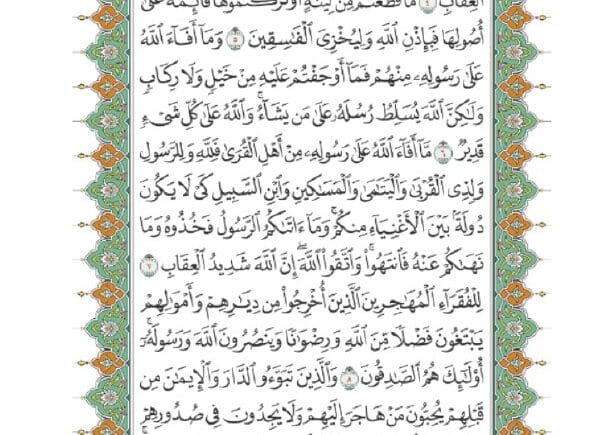 ٱلْعِقَابِ ٤ مَا قَطَعْتُم مِّن لِّينَةٍ أَوْ تَرَكْتُمُوهَا قَآئِمَةً عَلَىٰٓ
أُصُولِهَا فَبِإِذْنِ ٱللَّهِ وَلِيُخْزِىَ ٱلْفَـٰسِقِينَ ٥ وَمَآ أَفَآءَ ٱللَّهُ
عَلَىٰ رَسُولِهِۦ مِنْهُمْ فَمَآ أَوْجَفْتُمْ عَلَيْهِ مِنْ خَيْلٍ وَلَا رِكَابٍ
وَلَـٰكِنَّ ٱللَّهَ يُسَلِّطُ رُسُلَهُۥ عَلَىٰ مَن يَشَآءُ ۚ وَٱللَّهُ عَلَىٰ كُلِّ شَىْءٍ
قَدِيرٌ ٦ مَّآ أَفَآءَ ٱللَّهُ عَلَىٰ رَسُولِهِۦ مِنْ أَهْلِ ٱلْقُرَىٰ فَلِلَّهِ وَلِلرَّسُولِ
وَلِذِى ٱلْقُرْبَىٰ وَٱلْيَتَـٰمَىٰ وَٱلْمَسَـٰكِينِ وَٱبْنِ ٱلسَّبِيلِ كَىْ لَا يَكُونَ
دُولَةًۢ بَيْنَ ٱلْأَغْنِيَآءِ مِنكُمْ ۚ وَمَآ ءَاتَىٰكُمُ ٱلرَّسُولُ فَخُذُوهُ وَمَا
نَهَىٰكُمْ عَنْهُ فَٱنتَهُوا۟ ۚ وَٱتَّقُوا۟ ٱللَّهَ ۖ إِنَّ ٱللَّهَ شَدِيدُ ٱلْعِقَابِ ٧
لِلْفُقَرَآءِ ٱلْمُهَـٰجِرِينَ ٱلَّذِينَ أُخْرِجُوا۟ مِن دِيَـٰرِهِمْ وَأَمْوَٰلِهِمْ
يَبْتَغُونَ فَضْلًا مِّنَ ٱللَّهِ وَرِضْوَٰنًا وَيَنصُرُونَ ٱللَّهَ وَرَسُولَهُۥٓ ۚ
أُو۟لَـٰٓئِكَ هُمُ ٱلصَّـٰدِقُونَ ٨ وَٱلَّذِينَ تَبَوَّءُو ٱلدَّارَ وَٱلْإِيمَـٰنَ مِن
قَبْلِهِمْ يُحِبُّونَ مَنْ هَاجَرَ إِلَيْهِمْ وَلَا يَجِدُونَ فِى صُدُورِهِمْ